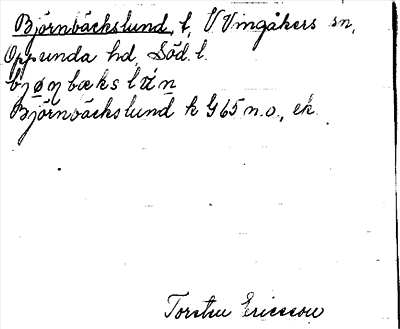 Björnbäckslund, t, V Vingåkers sn,
Oppunda hd, Söd. l.
Björnbäckslund k G 65 n.o., ek.
Torsten Ericsson